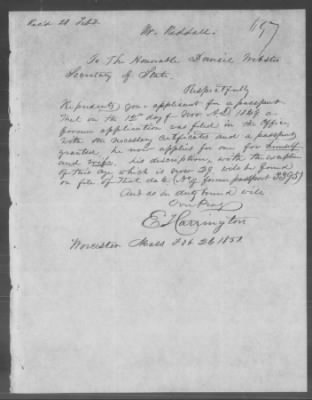 Rec'd 28 Feb.
W. Reddall.
697
To The Honorable Daniel Webster
Secretary of State.
Respectfully
Represents your applicant for a passport
That on the 12th day of Nov A.D. 1849 a
former application was filed in the Office,
with the necessary certificates and a passport
granted, he now applies for one for himself
and wife. his description, with the exception
of his age which is now 29 will be found
on file of that date (No of former passport 3395)
And as in duty bound will
Ever Pray
E Harrington
Worcester Mass Feb 26 1852